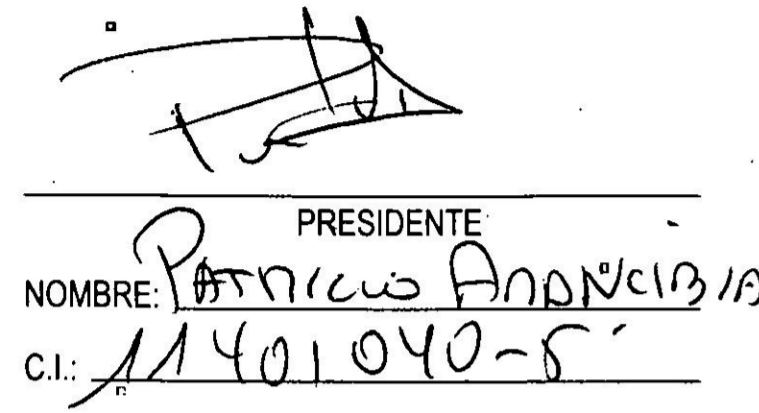 PRESIDENTE
NOMBRE: PATRICIO ARANCIBIA
C.I.: 11401040-5